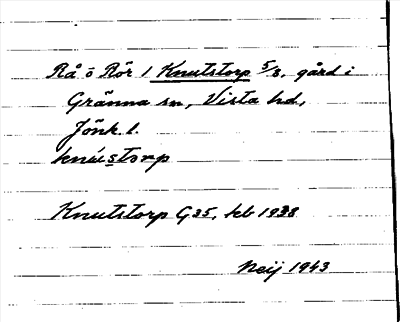 Rå ö Rör / Knutstorp 5/8, gård i
Gränna sn, Vista hd,
Jönk. l.
knústorp
Knutstorp G35, kb 1938
Neij 1943